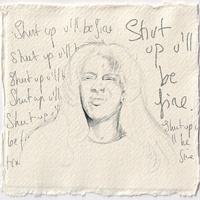 Shut up u'll be fine
Shut up u'll b
Shut up u'll b
Shut up u'll
Shut up u
be fi
fin
Shut
up u'll
be
fine.
Shut up u
ll be
fine